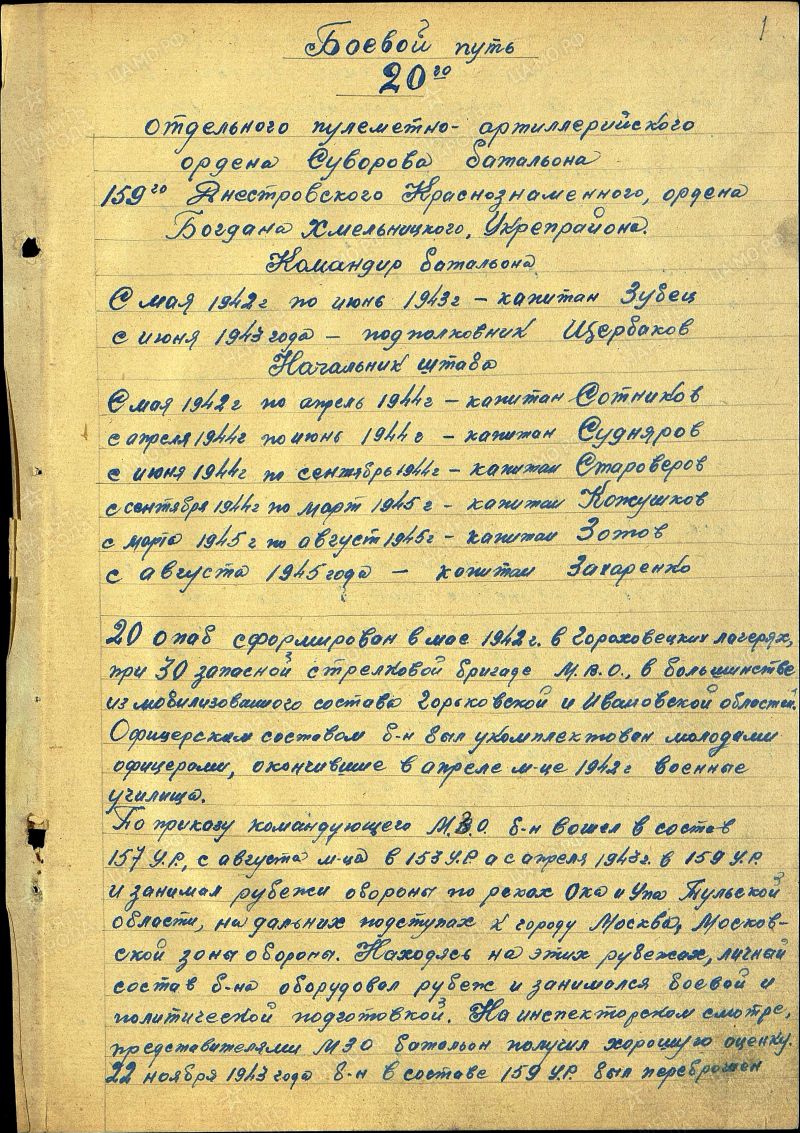 1
Боевой путь
20го
отдельного пулеметно-артиллерийского
ордена Суворова батальона
159го Днестровского Краснознаменного, ордена
Богдана Хмельницкого, Укрепрайона.
Командир батальона
С мая 1942г по июнь 1943г – капитан Зубец
с июня 1943 года – подполковник Щербаков
Начальник штаба
С мая 1942г по апрель 1944г – капитан Сотников
с апреля 1944г по июнь 1944г – капитан Судняров
с июня 1944г по сентябрь 1944г – капитан Староверов
с сентября 1944г по март 1945г – капитан Кожушков
с марта 1945г по август 1945г – капитан Зотов
с августа 1945 года – капитан Захаренко
20 опаб сформирован в мае 1942г. в Гороховецких лагерях,
при 30 запасной стрелковой бригаде М.В.О., в большинстве
из мобилизованного состава Горьковской и Ивановской областей.
Офицерским составом б-н был укомплектован молодами
офицерами, окончившие в апреле м-це 1942г военные
училища.
По приказу командующего М.З.О. б-н вошел в состав
157 У.Р., с августа м-ца в 153 У.Р. а с апреля 1943г. в 159 У.Р.
и занимал рубежи обороны по рекам Ока и Упа Тульской
области, на дальних подступах к городу Москва, Москов-
ской зоны обороны. Находясь на этих рубежах, личный
состав б-на оборудовал рубеж и занимался боевой и
политической подготовкой. На инспекторском смотре,
представителями МЗО батальон получил хорошую оценку.
22 ноября 1943 года б-н в составе 159 У.Р. был переброшен
ПАМЯТЬ НАРОДА
ЦАМО.РФ